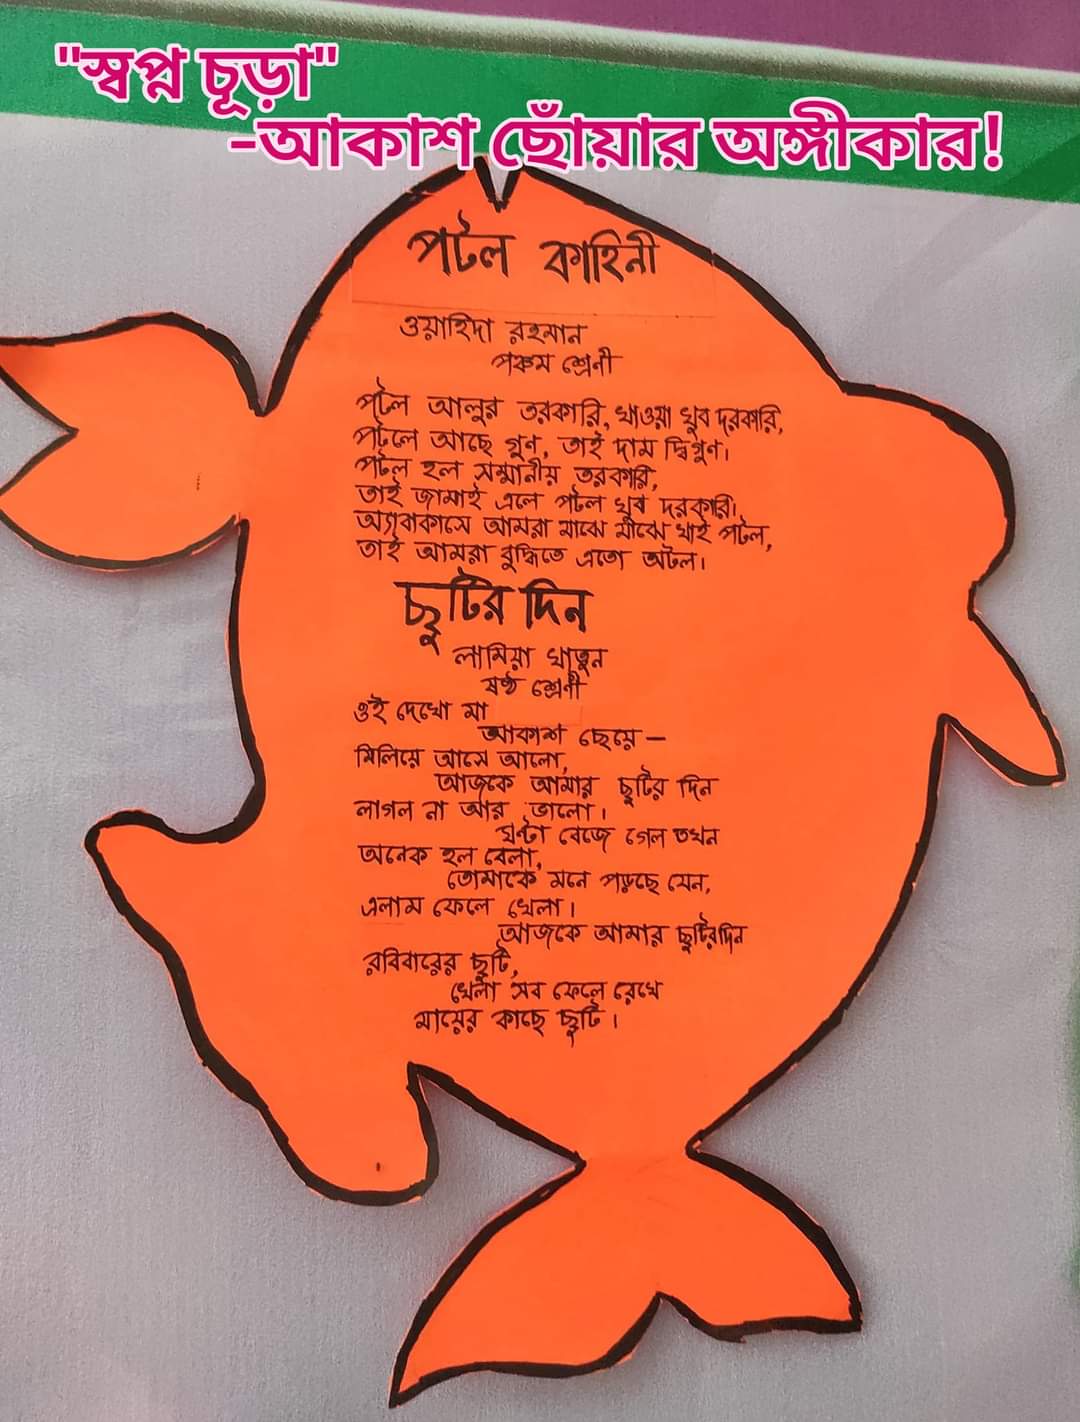 "স্বপ্ন চূড়া"
-আকাশ ছোঁয়ার অঙ্গীকার!
পটল কাহিনী
ওয়াহিদা রহমান
পঞ্চম শ্রেণী
পটল আলুর তরকারি, খাওয়া খুব দরকারি,
পটলে আছে গুণ, তাই দাম দ্বিগুণ।
পটল হল সম্মানীয় তরকারি,
তাই জামাই এলে পটল খুব দরকারী।
অ্যাবাকাসে আমরা মাঝে মাঝে খাই পটল,
তাই আমরা বুদ্ধিতে এতো অটল।
ছুটির দিন
লামিয়া খাতুন
ষষ্ঠ শ্রেণী
ওই দেখো মা
আকাশ ছেয়ে —
মিলিয়ে আসে আলো,
আজকে আমার ছুটির দিন
লাগল না আর ভালো।
ঘণ্টা বেজে গেল তখন
অনেক হল বেলা,
তোমাকে মনে পড়ছে যেন,
এলাম ফেলে খেলা।
আজকে আমার ছুটিরদিন
রবিবারের ছুটি,
খেলা সব ফেলে রেখে
মায়ের কাছে ছুটি।